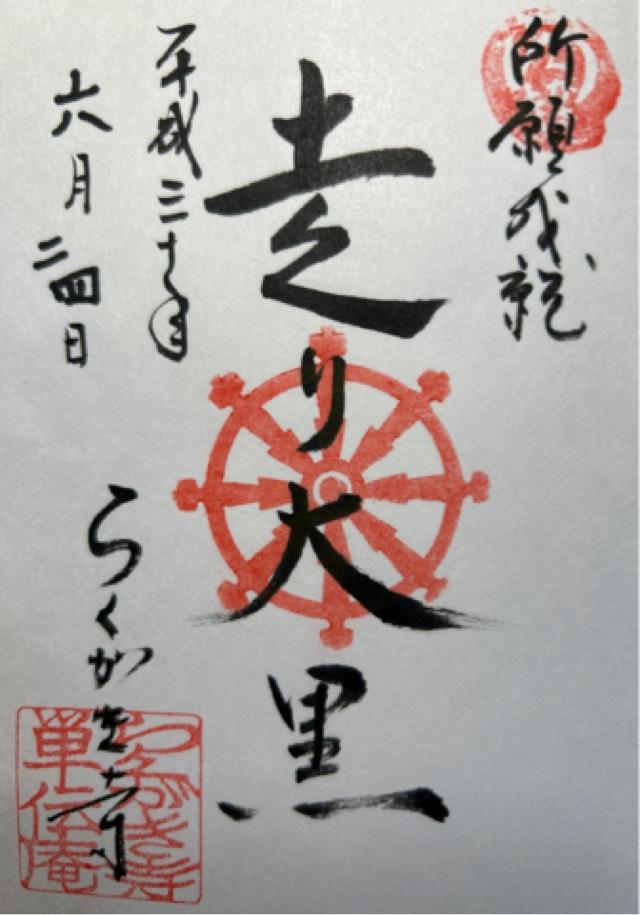 所願成就
走り大黒
平成三十年
六月二四日
らくがき寺
らくがき寺
単伝庵